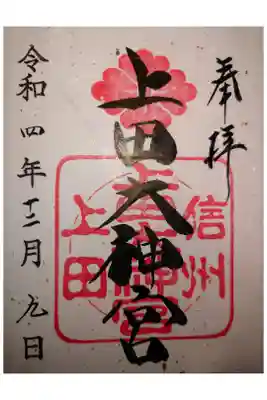 奉拝
上田大神宮
信州
上田
大神宮
令和四年十二月九日